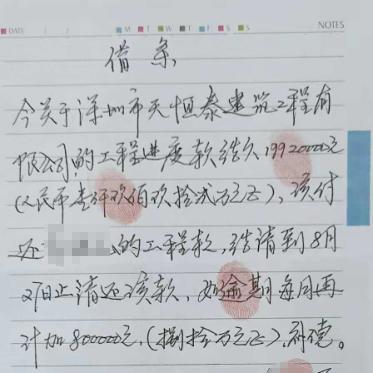 DATE / / M T W T F S S NOTES
借条
今关于深圳市天恒泰建筑工程有
限公司的工程进度款结欠19920000元
(人民币壹仟玖佰玖拾贰万元正),该付
还的工程款,结请到8月
27日止清还该款,如逾期每月再
计加800000元,(捌拾万元正),补偿。